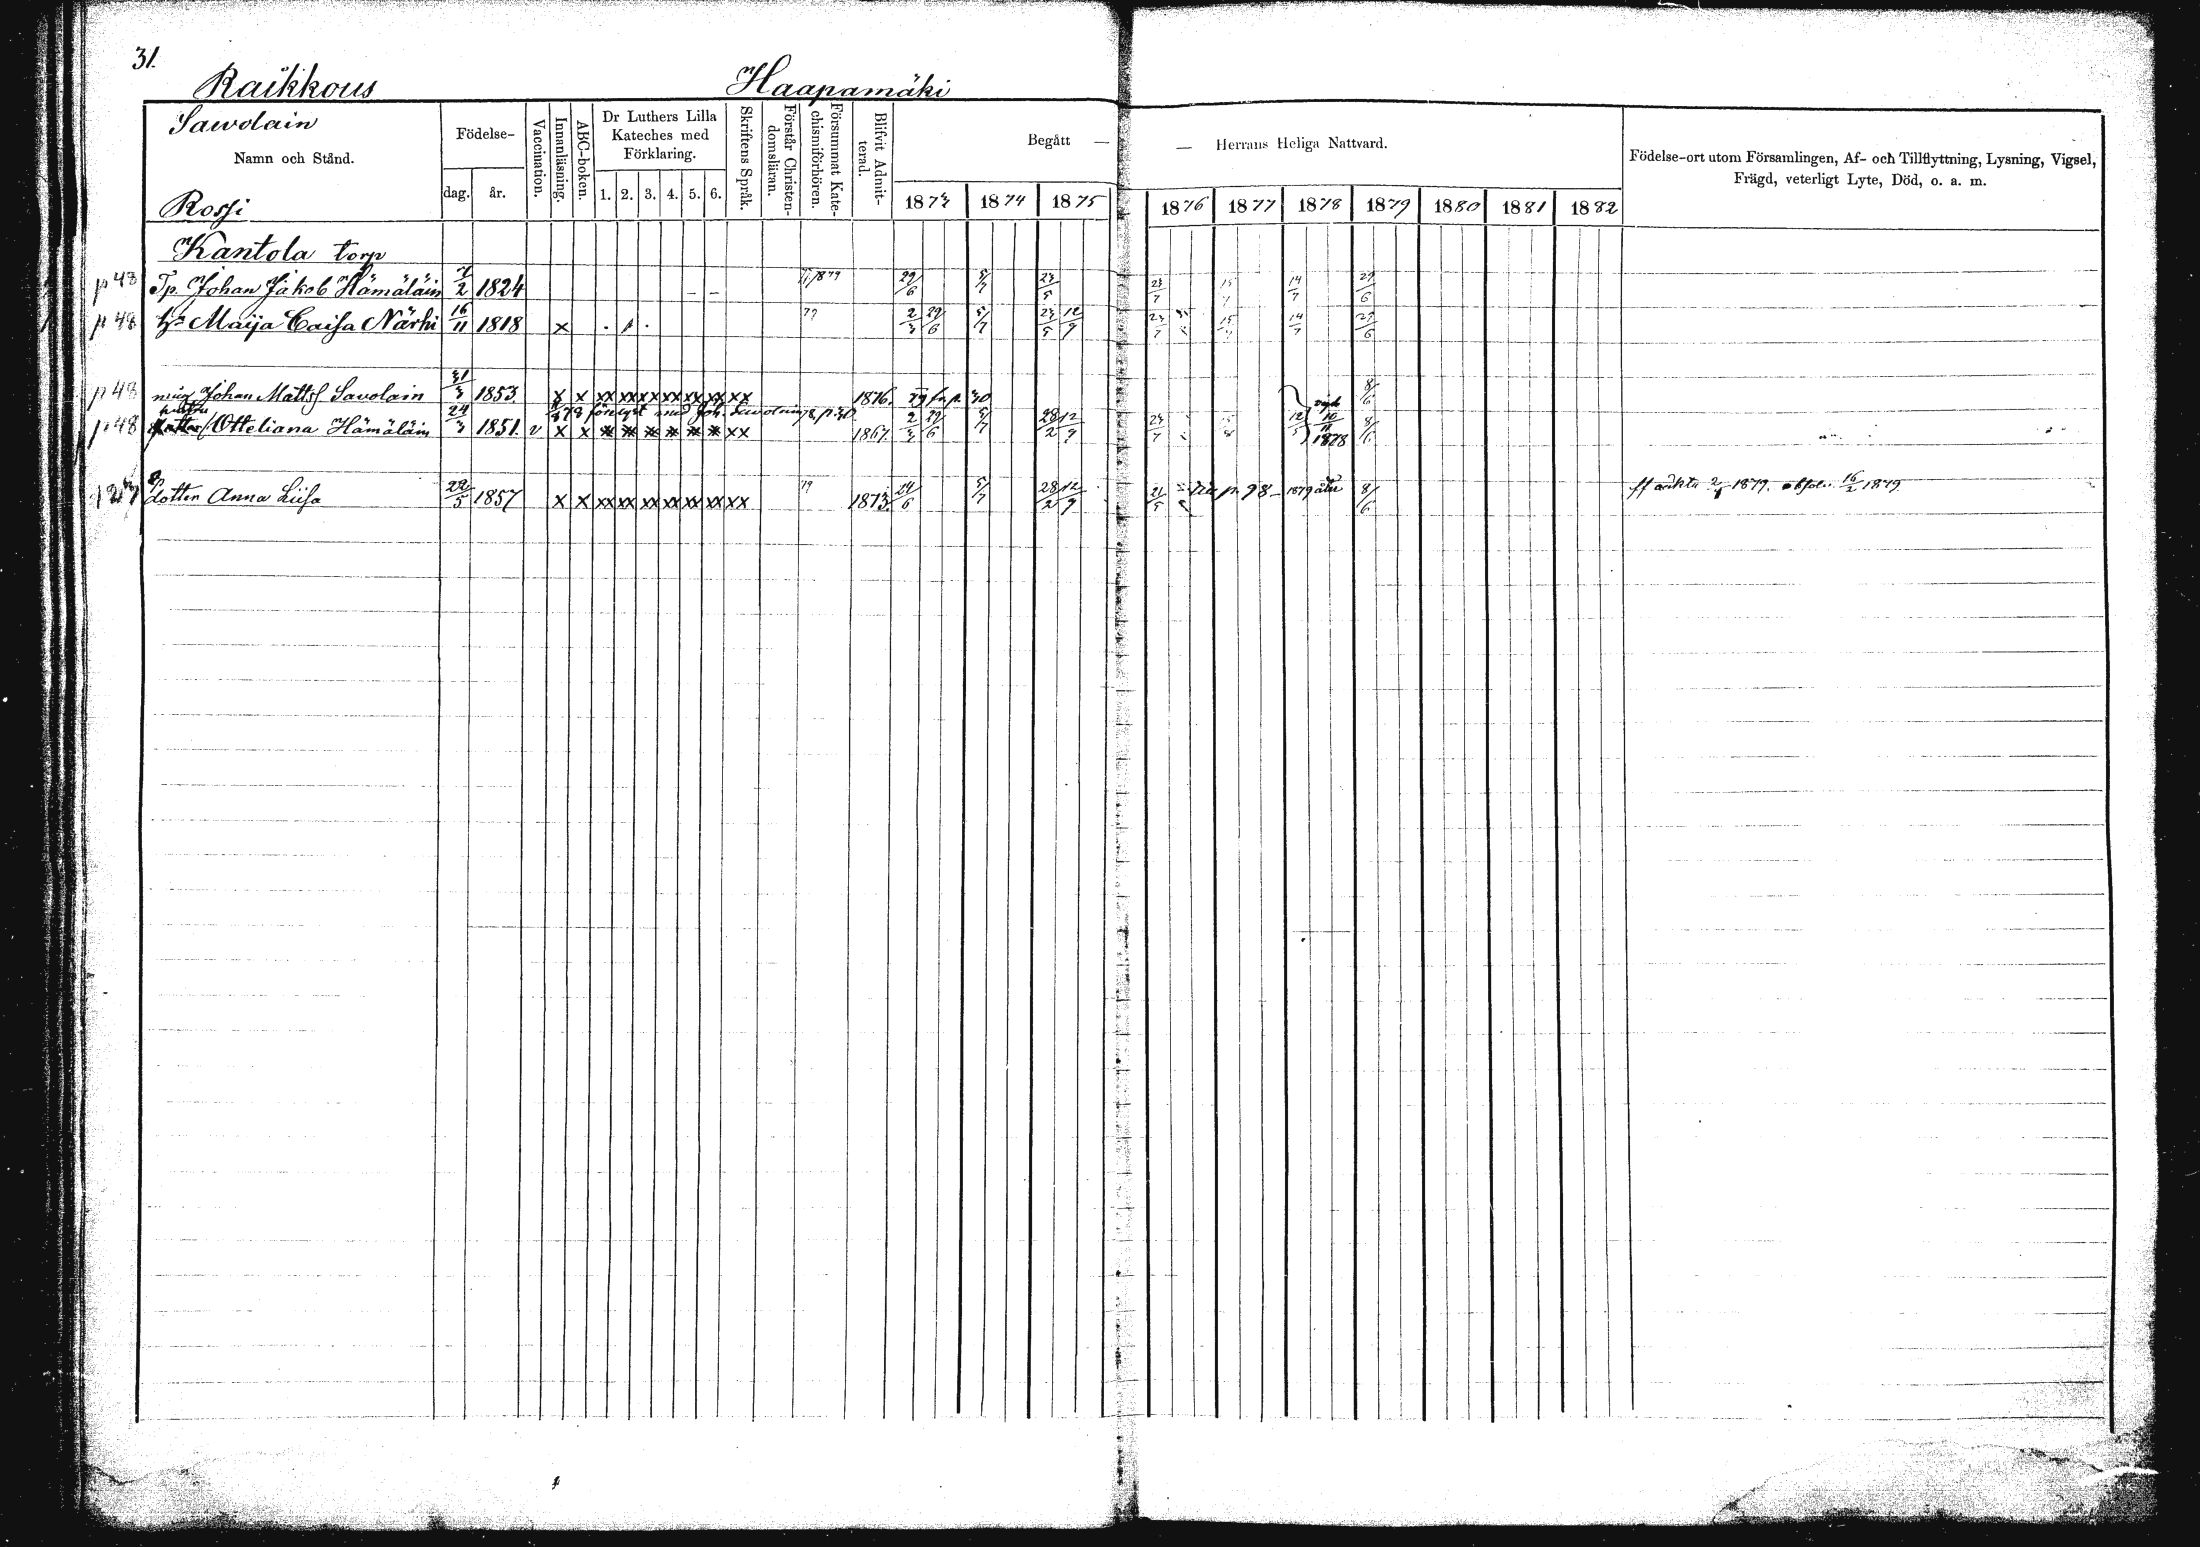 31.
Raikkous Haapamäki
Sawolain
Namn och Stånd.
Rossi
Födelse-
dag. år.
Vaccination.
Innanläsning.
ABC-boken.
Dr Luthers Lilla
Kateches med
Förklaring.
1. 2. 3. 4. 5. 6.
Skriftens Språk.
Förstår Christen-
domsläran.
Försummat Kate-
chismiförhören.
Blifvit Admit-
terad.
Begått — — Herrans Heliga Nattvard.
1873 1874 1875 1876 1877 1878 1879 1880 1881 1882
Födelse-ort utom Församlingen, Af- och Tillflyttning, Lysning, Vigsel,
Frägd, veterligt Lyte, Död, o. a. m.
Kantola torp
p 48 Tp. Johan Jakob Hämäläin 7/2 1824 - - 1879 29/6 5/7 23/5 23/7 15/7 14/7 29/6
p 48 hu Maija Caisa Närhi 16/11 1818 x 79 2/3 29/6 5/7 23/5 12/9 23/7 15/7 14/7 29/6
p 48 måg Johan Matts Savolain 31/3 1853. x x xx xx xx xx xx xx xx 1876. 79 fr. p. 30 8/6
hustru 78 förlyst med Joh. Savolain p. 30
p 48 dotter Otteliana Hämäläin 24/3 1851. v x x x x x x x x xx 1867. 2/3 29/6 5/7 28/2 12/9 23/7 12/5 vigd 10/11 1878 8/6
dotter Anna Liisa 22/5 1857 x x xx xx xx xx xx xx xx 79 1873. 24/6 5/7 28/2 12/9 21/5 p. 98 - 1879 åter 8/6 ff äkta 2/1 1879. absolv. 16/2 1879